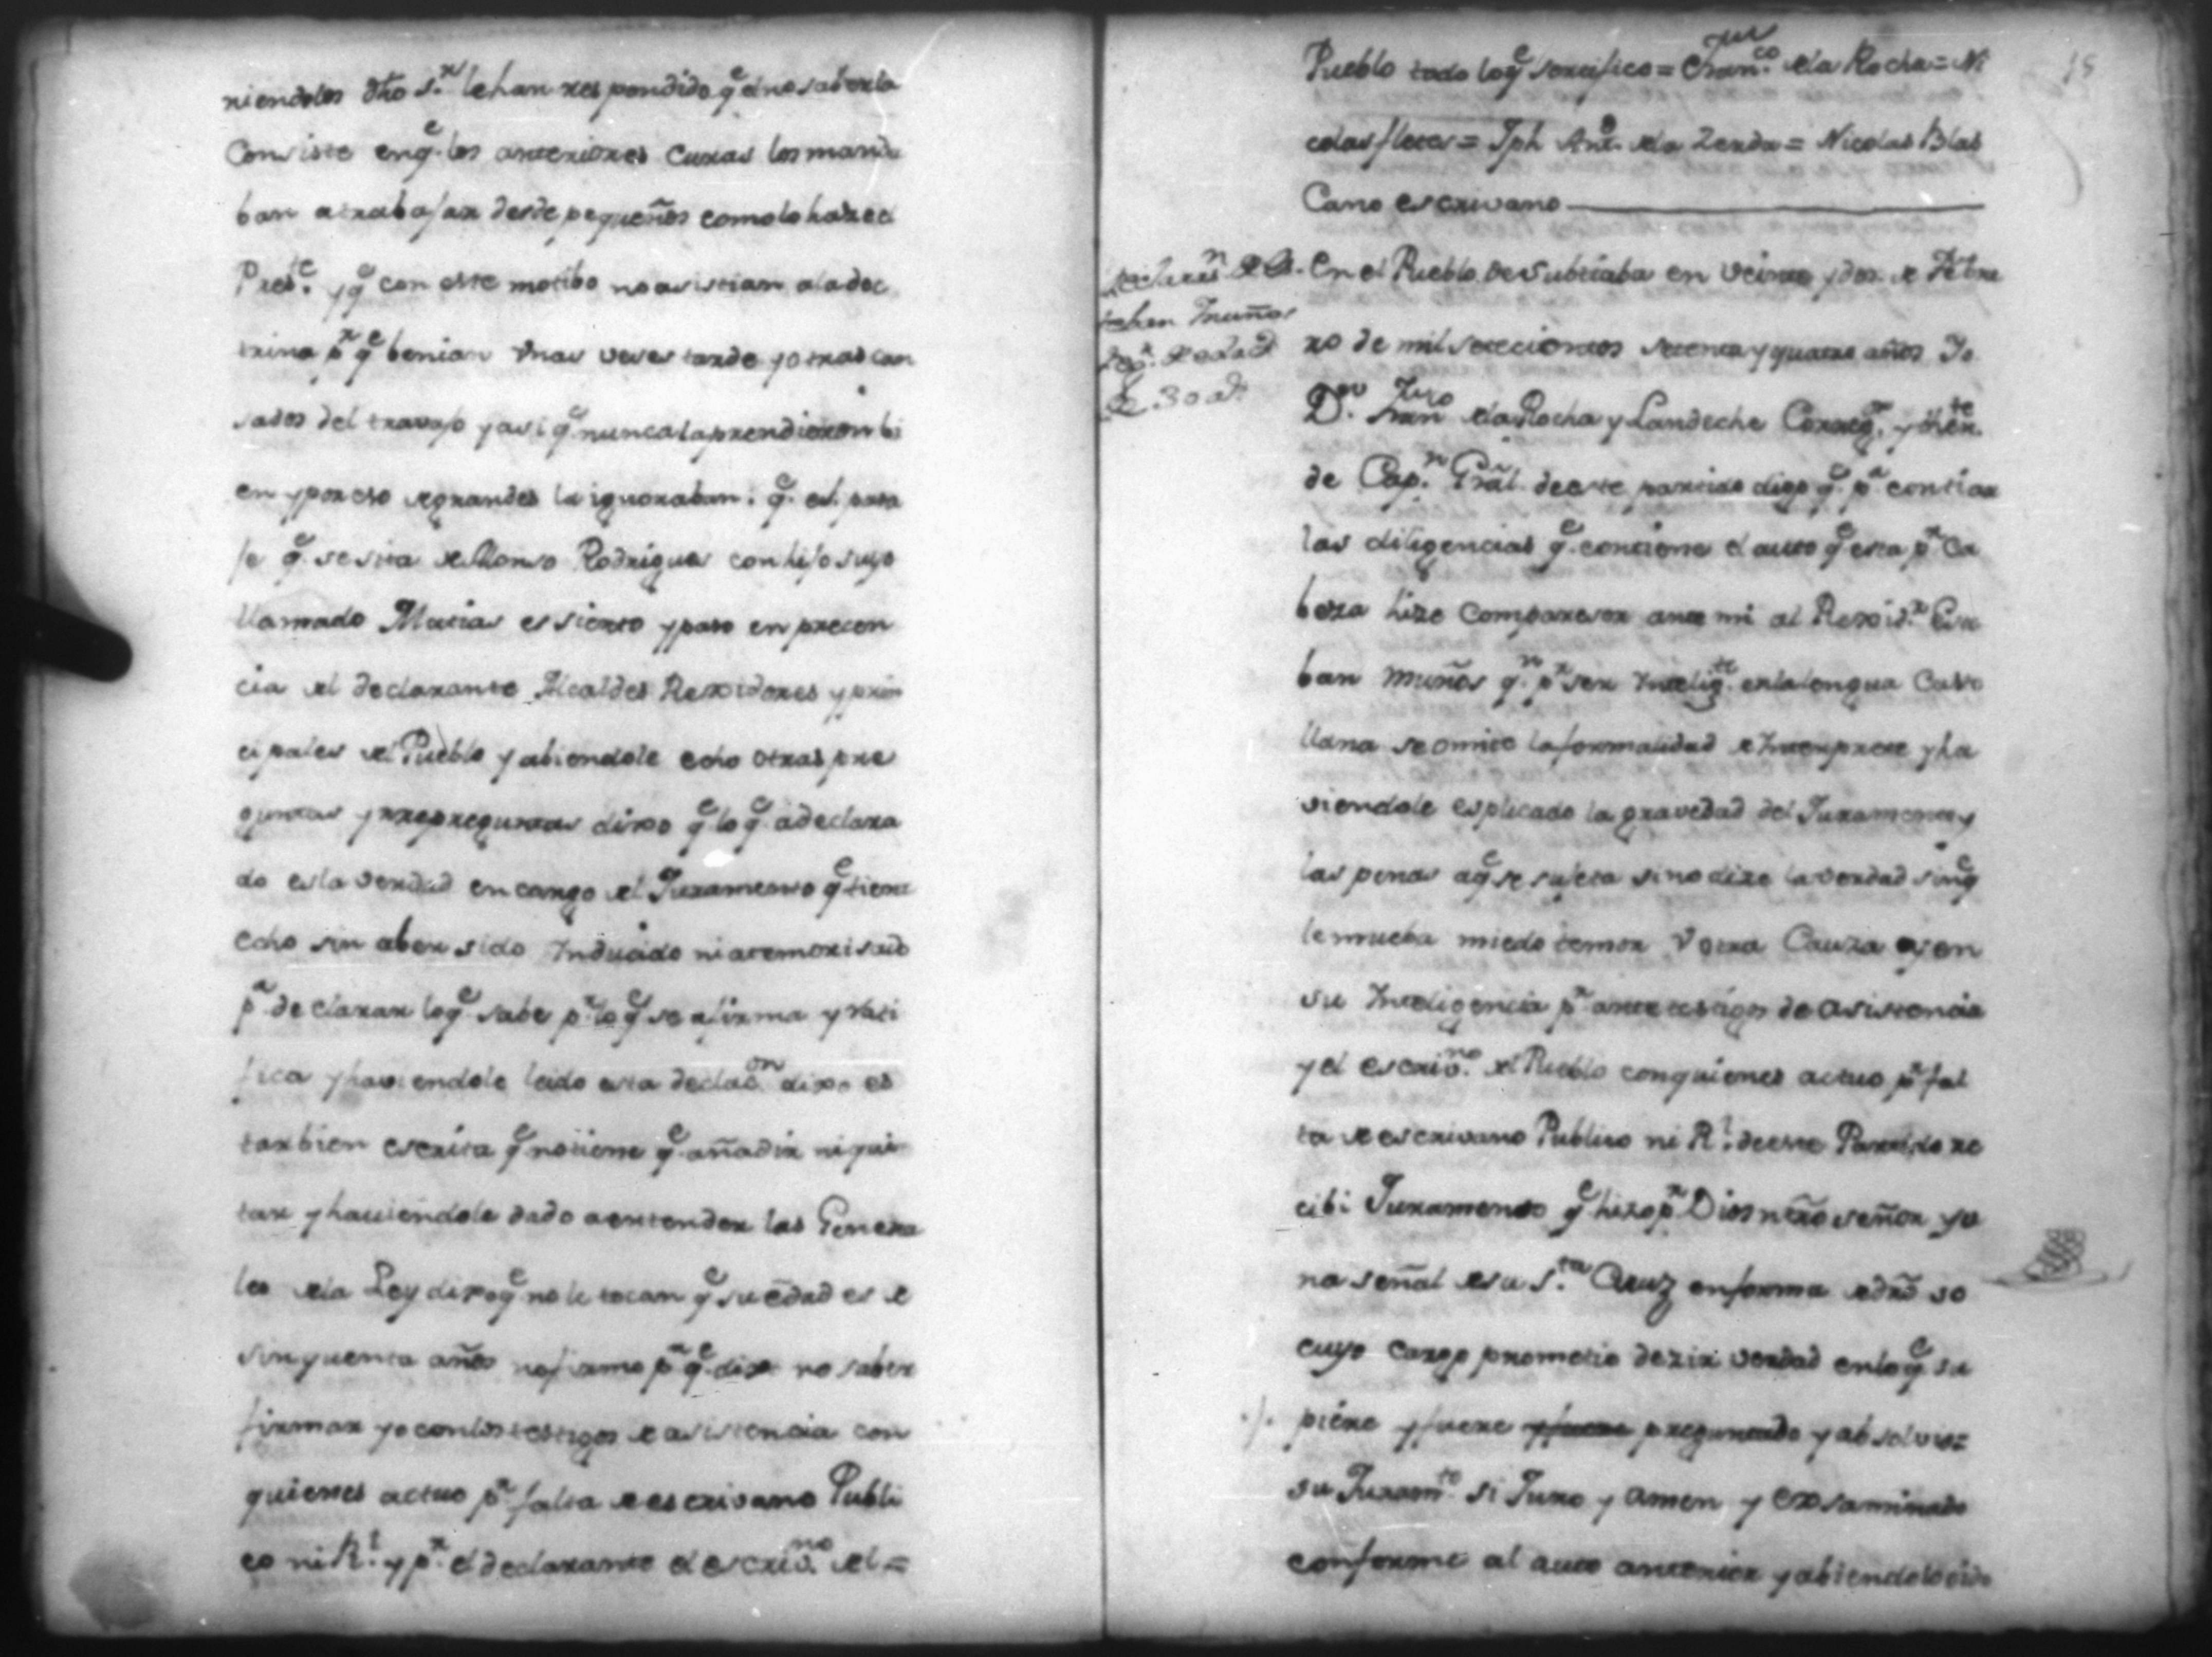 niendolos dho s.r le han respondido q.e el no saberla
Consiste en q.e los anteriores Curas los manda
ban a trabajar desde pequeños como lo hase el
Pres.te y q.e con este motibo no asistian a la doc
trina p.r q.e benian Vnas veses tarde y otras can
sados del travajo y asi q.e nunca la prendieron bi
en y por eso de grandes la ignoraban. q.e el pasa
je q.e se sita de Alonso Rodrigues con hijo suyo
llamado Matias es sierto y paso en precen
cia del declarante Alcaldes Rexidores y prin
cipales del Pueblo y abiendole echo otras pre
guntas y rrepreguntas dixo q.e lo q.e a declara
do es la verdad en cargo del Juramento q.e tiene
echo sin aber sido Inducido ni atemorisado
p.a declarar lo q.e sabe p.r lo q.e se afirma y rati
fica y haviendole leido esta declas.on dixo es
tar bien escrita q.e no tiene q.e añadir ni qui
tar y haviendole dado a entender las Genera
les de la Ley dixo q.e no le tocan q.e su edad es de
sinquenta años no firmo p.r q.e dixo no saber
firmar yo con los testigos de asistencia con
quienes actuo p.r falta de escrivano Publi
co ni R.l y p.r el declarante el escriv.no del =
Pueblo todo lo q.e sertifico = Fran.co de la Rocha = Ni
colas fletes = Jph Ant.o de la Zerda = Nicolas Blas
Cano escrivano
En el Pueblo de Subtiaba en Veinte y dos de Febre
ro de mil setecientos setenta y quatro años Yo
D.n Fran.co de la Rocha y Landeche Correg.r y then.te
de Cap.n Gral. de este partido digo q.e p.a contiar
las diligencias q.e contiene el auto q.e esta p.r Ca
beza hize Compareser ante mi al Rexid.r Este
ban Muños q.n p.r ser Intelig.te en la lengua Caste
llana se omite la formalidad de Interprete y ha
viendole esplicado la gravedad del Juramento y
las penas a q.e se sujeta si no dize la verdad sin q.e
le mueba miedo temor V otra Cauza y en
su Inteligencia p.r ante testigos de asistencia
y el escriv.no del Pueblo con quienes actuo p.r fal
ta de escrivano Publico ni R.l de este Partido re
cibi Juramento q.e hizo p.r Dios ntro señor y u
na señal de su S.ta Cruz en forma de dro so
cuyo cargo prometio dezir verdad en lo q.e su
piere y fuere y fuere preguntado y absolvio =
su Juram.to si Juro y amen y exsaminado
conforme al auto anterior y abiendolo oido